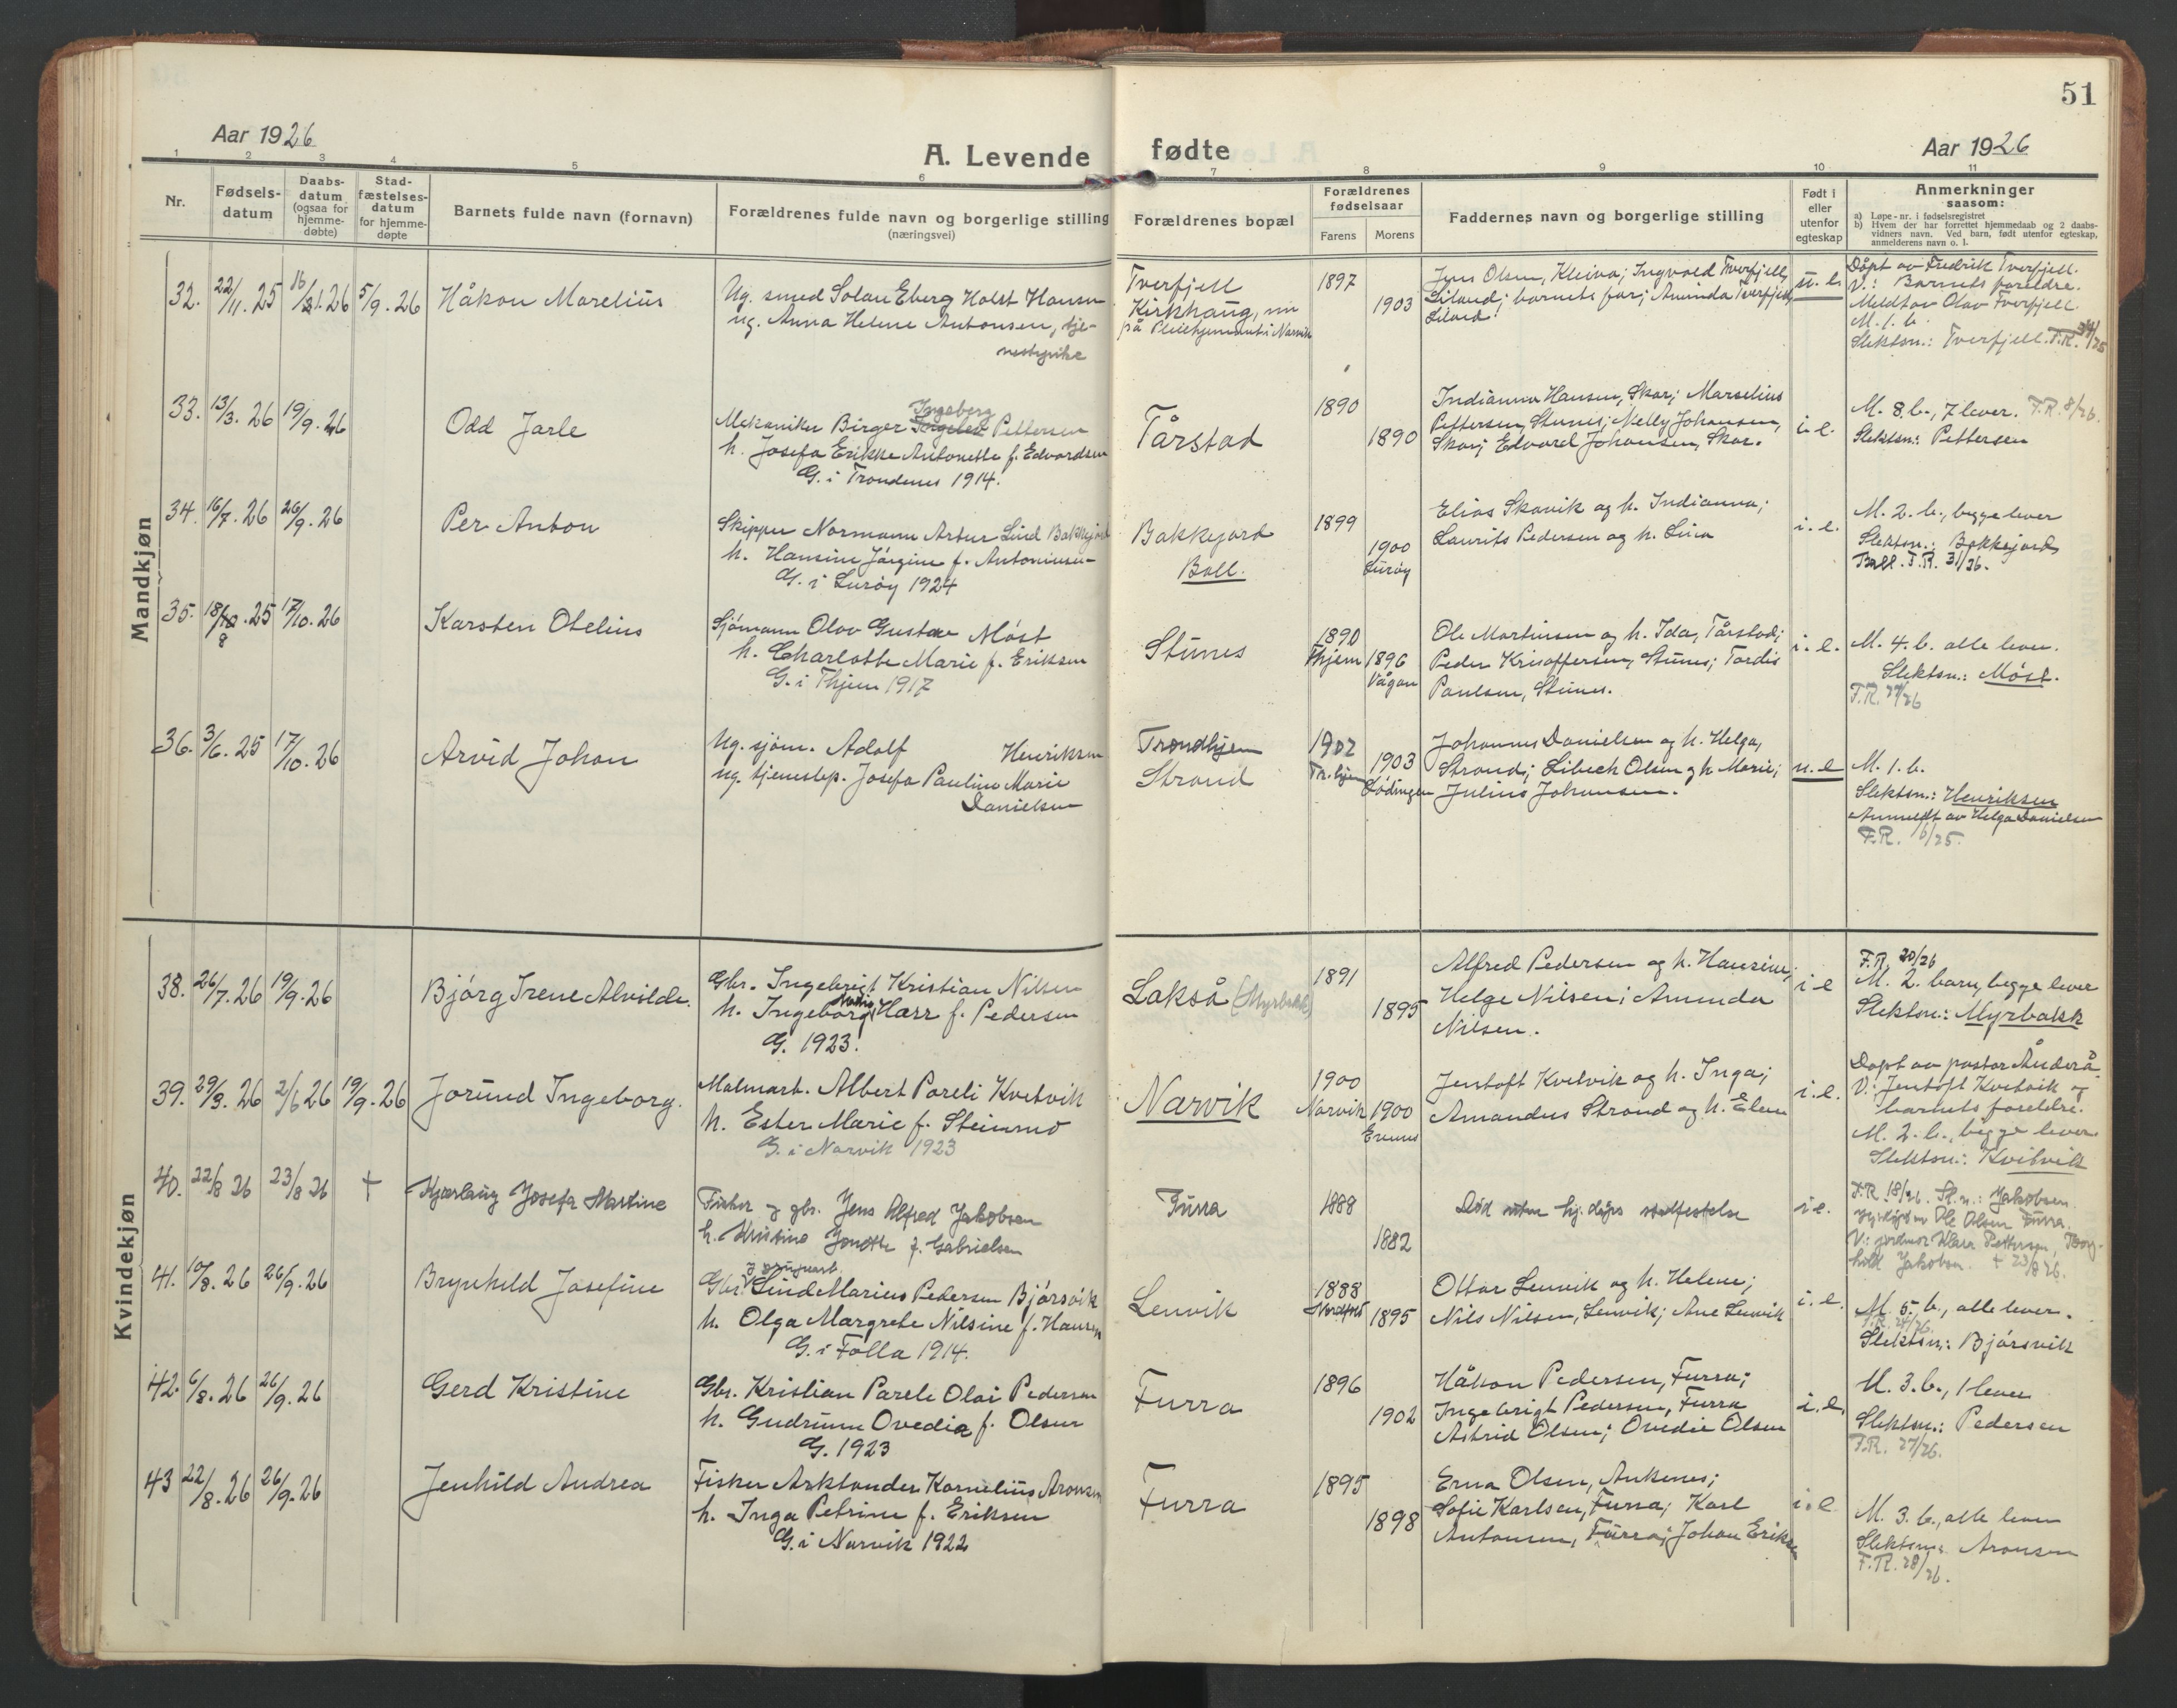 51
Aar 1926
A. Levende fødte
Aar 1926
1 2 3 4 5 6 7 8 9 10 11
Nr.
Fødsels-
datum
Daabs-
datum
(ogsaa for
hjemme-
døbte)
Stad-
fæstelses-
datum
for hjemme-
døpte
Barnets fulde navn (fornavn)
Forældrenes fulde navn og borgerlige stilling
(næringsvei)
Forældrenes bopæl
Forældrenes
fødselsaar
Farens Morens
Faddernes navn og borgerlige stilling
Født i
eller
utenfor
egteskap
Anmerkninger
saasom:
a) Løpe-nr. i fødselsregistret
b) Hvem der har forrettet hjemmedaab og 2 daabs-
vidners navn. Ved barn, født utenfor egteskap,
anmelderens navn o. l.
Mandkjøn
32. 22/11. 25 5/9. 26 Håkon Marelius
Ug. smed Solan Eberg Holst Hansen
ug. Anna Helene Antonsen, tje-
nestepike
Tverfjell
Kirkhaug, nu
på Pleiehjemmet i Narvik
1897
1903
Jens Olsen, Kleiva; Ingvald Tverfjell,
Liland; barnets far; Aminda Tverfjell,
Liland.
u. e.
Døpt av Fredrik Tverfjell.
V.: Barnets foreldre.
Meldt av Olav Tverfjell.
M. 1. b.
Slektsn.: Tverfjell. F.R. 34/25
33. 13/3. 26 19/9. 26 Odd Jarle
Ingeberg
Mekaniker Birger Pettersen
h. Josefa Erikke Antonette f. Edvardsen
G. i Trondenes 1914.
Tårstad
1890
1890
Indianna Hansen, Skar; Marselius
Pettersen, Stunes; Nelly Johansen,
Skar; Edvard Johansen, Skar.
i. e.
M. 8. b., 7 lever. F.R. 8/26.
Slektsn.: Pettersen
34. 16/7. 26 26/9. 26 Per Anton
Skipper Normann Artur Lind Bakkejord
h. Hansine Jørgine f. Antoniusen
G. i Lurøy 1924
Bakkejord
Ball.
1899
1900
Lurøy
Elias Skavik og h. Indianna;
Laurits Pedersen og h. Lina
i. e.
M. 2. b., begge lever
Slektsn.: Bakkejord
Ball. F.R. 31/26.
35. 18/8. 25 17/10. 26 Karsten Otelius
Sjømann Olav Gustav Møst
h. Charlotte Marie f. Eriksen
G. i Thjem 1917
Stunes
1890
Thjem
1896
Vågan
Ole Martinsen og h. Ida, Tårstad;
Peder Kristoffersen, Stunes; Tordis
Paulsen, Stunes.
i. e.
M. 4. b. alle lever.
Slektsn.: Møst.
F.R. 27/26
36. 3/6. 25 17/10. 26 Arvid Johan
Ug. sjøm. Adolf Henriksen
ug. tjenestep. Josefa Pauline Marie
Danielsen
Trondhjem
Strand
1902
Tr.hjem
1903
Lødingen
Johannes Danielsen og h. Helga,
Strand; Libech Olsen og h. Marie;
Julius Johansen.
u. e
M. 1. b.
Slektsn.: Henriksen
Anmeldt av Helga Danielsen
F.R. 16/25.
Kvindekjøn
38. 26/7. 26 19/9. 26 Bjørg Irene Alvilde.
Gbr. Ingebrigt Kristian Nilsen
h. Ingeborg Harr f. Pedersen
G. 1923.
Lakså (Myrbakk)
1891
1895
Alfred Pedersen og h. Hansine;
Helge Nilsen; Amunda
Nilsen.
i e
F.R. 20/26
M. 2. barn, begge lever
Slektsn.: Myrbakk
39. 29/3. 26 2/6 26 19/9. 26 Jorund Ingeborg.
Malmarb. Albert Pareli Kvitvik
h. Ester Marie f. Steinmo
G. i Narvik 1923
Narvik
1900
Narvik
1900
Evenes
Jentoft Kvitvik og h. Inga;
Amandus Strand og h. Elene
i. e.
Døpt av pastor Anderå.
V.: Jentoft Kvitvik og
barnets foreldre.
M. 2. b., begge lever
Slektsn.: Kvitvik
40. 22/8 26 23/8 26 † Kjærlaug Josefa Martine
Fisker og gbr. Jens Alfred Jakobsen
h. Kristine Jonette f. Gabrielsen
Furra
1888
1882
Død uten hj. dåps stadfestelse
i e.
F.R. 18/26. Sl.n.: Jakobsen
Ole Olsen Furra.
V: jordmor Klara Pettersen, Borg-
hild Jakobsen. † 23/8 26.
41. 10/8. 26 26/9. 26 Brynhild Josefine
Gbr. Lind Marius Pedersen Bjørsvik
h. Olga Margrete Nilsine f. Hansen
G. i Folla 1914.
Lenvik
1888
1895
Ottar Lenvik og h. Helene;
Nils Nilsen, Lenvik; Ane Lenvik
i. e.
M. 5. b., alle lever.
F.R. 24/26.
Slektsn.: Bjørsvik
42. 6/8. 26 26/9. 26 Gerd Kristine
Gbr. Kristian Parele Olai Pedersen
h. Gudrunn Ovedia f. Olsen
G. 1923
Furra
1896
1902
Håkon Pedersen, Furra;
Ingebrigt Pedersen, Furra
Astrid Olsen; Ovedie Olsen
i. e.
M. 3. b., 1 lever
Slektsn.: Pedersen
F.R. 27/26.
43 22/8. 26 26/9. 26 Jenhild Andrea
Fisker Arktander Kornelius Aronsen
h. Inga Petrine f. Eriksen
G. i Narvik 1922
Furra
1895
1898
Erna Olsen, Ankenes;
Sofie Karlsen, Furra; Karl
Antonsen, Furra; Johan Eriksen
i. e
M. 3. b., alle lever
Slektsn.: Aronsen
F.R. 28/26.